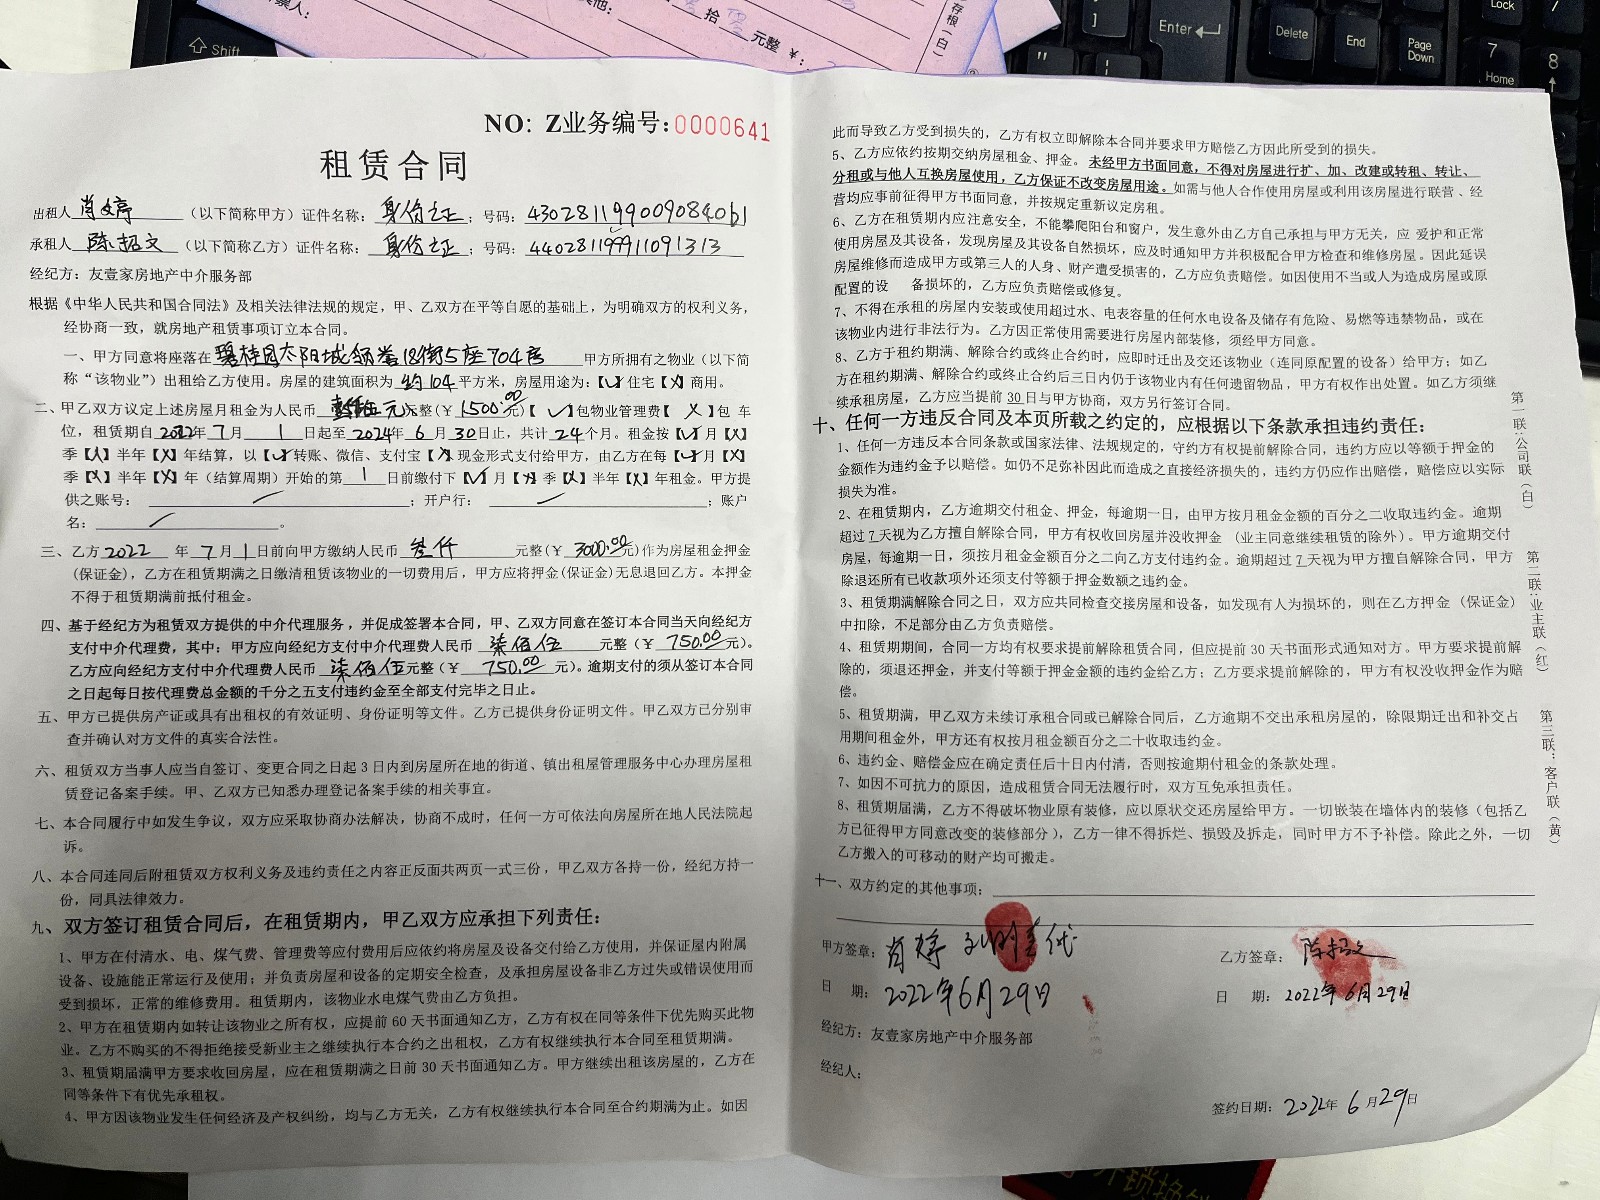 Shift
票人：
其他：
拾
元整 ￥：
存根（白）
Enter
Delete
End
Page Down
Lock
7
Home
8
NO: Z业务编号：0000641
租赁合同
出租人 肖婷 （以下简称甲方）证件名称：身份证；号码：430281199009084061
承租人 陈招文 （以下简称乙方）证件名称：身份证；号码：440281199911091313
经纪方：友壹家房地产中介服务部
根据《中华人民共和国合同法》及相关法律法规的规定，甲、乙双方在平等自愿的基础上，为明确双方的权利义务，
经协商一致，就房地产租赁事项订立本合同。
一、甲方同意将座落在 碧桂园太阳城领誉18街5座704房 甲方所拥有之物业（以下简
称“该物业”）出租给乙方使用。房屋的建筑面积为 约104 平方米，房屋用途为：【✓】住宅【X】商用。
二、甲乙双方议定上述房屋月租金为人民币 元整(￥1500.00元)【✓】包物业管理费【X】包 车
位，租赁期自2022年7月1日起至2024年6月30日止，共计24个月。租金按【✓】月【X】
季【X】半年【X】年结算，以【✓】转账、微信、支付宝【X】现金形式支付给甲方，由乙方在每【✓】月【X】
季【X】半年【X】年（结算周期）开始的第 1 日前缴付下【✓】月【X】季【X】半年【X】年租金。甲方提
供之账号： ；开户行： ；账户
名： 。
三、乙方2022年7月1日前向甲方缴纳人民币 叁仟 元整(￥3000.00元)作为房屋租金押金
(保证金)，乙方在租赁期满之日缴清租赁该物业的一切费用后，甲方应将押金(保证金)无息退回乙方。本押金
不得于租赁期满前抵付租金。
四、基于经纪方为租赁双方提供的中介代理服务，并促成签署本合同，甲、乙双方同意在签订本合同当天向经纪方
支付中介代理费，其中：甲方应向经纪方支付中介代理费人民币 柒佰伍 元整（￥750.00元）。
乙方应向经纪方支付中介代理费人民币 柒佰伍 元整（￥750.00元）。逾期支付的须从签订本合同
之日起每日按代理费总金额的千分之五支付违约金至全部支付完毕之日止。
五、甲方已提供房产证或具有出租权的有效证明、身份证明等文件。乙方已提供身份证明文件。甲乙双方已分别审
查并确认对方文件的真实合法性。
六、租赁双方当事人应当自签订、变更合同之日起3日内到房屋所在地的街道、镇出租屋管理服务中心办理房屋租
赁登记备案手续。甲、乙双方已知悉办理登记备案手续的相关事宜。
七、本合同履行中如发生争议，双方应采取协商办法解决，协商不成时，任何一方可依法向房屋所在地人民法院起
诉。
八、本合同连同后附租赁双方权利义务及违约责任之内容正反面共两页一式三份，甲乙双方各持一份，经纪方持一
份，同具法律效力。
九、双方签订租赁合同后，在租赁期内，甲乙双方应承担下列责任：
1、甲方在付清水、电、煤气费、管理费等应付费用后应依约将房屋及设备交付给乙方使用，并保证屋内附属
设备、设施能正常运行及使用；并负责房屋和设备的定期安全检查，及承担房屋设备非乙方过失或错误使用而
受到损坏，正常的维修费用。租赁期内，该物业水电煤气费由乙方负担。
2、甲方在租赁期内如转让该物业之所有权，应提前60天书面通知乙方，乙方有权在同等条件下优先购买此物
业。乙方不购买的不得拒绝接受新业主之继续执行本合约之出租权，乙方有权继续执行本合同至租赁期满。
3、租赁期届满甲方要求收回房屋，应在租赁期满之日前30天书面通知乙方。甲方继续出租该房屋的，乙方在
同等条件下有优先承租权。
4、甲方因该物业发生任何经济及产权纠纷，均与乙方无关，乙方有权继续执行本合同至合约期满为止。如因
此而导致乙方受到损失的，乙方有权立即解除本合同并要求甲方赔偿乙方因此所受到的损失。
5、乙方应依约按期交纳房屋租金、押金。未经甲方书面同意，不得对房屋进行扩、加、改建或转租、转让、
分租或与他人互换房屋使用，乙方保证不改变房屋用途。如需与他人合作使用房屋或利用该房屋进行联营、经
营均应事前征得甲方书面同意，并按规定重新议定房租。
6、乙方在租赁期内应注意安全，不能攀爬阳台和窗户，发生意外由乙方自己承担与甲方无关，应 爱护和正常
使用房屋及其设备，发现房屋及其设备自然损坏，应及时通知甲方并积极配合甲方检查和维修房屋。因此延误
房屋维修而造成甲方或第三人的人身、财产遭受损害的，乙方应负责赔偿。如因使用不当或人为造成房屋或原
配置的设 备损坏的，乙方应负责赔偿或修复。
7、不得在承租的房屋内安装或使用超过水、电表容量的任何水电设备及储存有危险、易燃等违禁物品，或在
该物业内进行非法行为。乙方因正常使用需要进行房屋内部装修，须经甲方同意。
8、乙方于租约期满、解除合约或终止合约时，应即时迁出及交还该物业（连同原配置的设备）给甲方；如乙
方在租约期满、解除合约或终止合约后三日内仍于该物业内有任何遗留物品，甲方有权作出处置。如乙方须继
续承租房屋，乙方应当提前30日与甲方协商，双方另行签订合同。
十、任何一方违反合同及本页所载之约定的，应根据以下条款承担违约责任：
1、任何一方违反本合同条款或国家法律、法规规定的，守约方有权提前解除合同，违约方应以等额于押金的
金额作为违约金予以赔偿。如仍不足弥补因此而造成之直接经济损失的，违约方仍应作出赔偿，赔偿应以实际
损失为准。
2、在租赁期内，乙方逾期交付租金、押金，每逾期一日，由甲方按月租金金额的百分之二收取违约金。逾期
超过7天视为乙方擅自解除合同，甲方有权收回房屋并没收押金（业主同意继续租赁的除外）。甲方逾期交付
房屋，每逾期一日，须按月租金金额百分之二向乙方支付违约金。逾期超过7天视为甲方擅自解除合同，甲方
除退还所有已收款项外还须支付等额于押金数额之违约金。
3、租赁期满解除合同之日，双方应共同检查交接房屋和设备，如发现有人为损坏的，则在乙方押金（保证金）
中扣除，不足部分由乙方负责赔偿。
4、租赁期期间，合同一方均有权要求提前解除租赁合同，但应提前30天书面形式通知对方。甲方要求提前解
除的，须退还押金，并支付等额于押金金额的违约金给乙方；乙方要求提前解除的，甲方有权没收押金作为赔
偿。
5、租赁期满，甲乙双方未续订承租合同或已解除合同后，乙方逾期不交出承租房屋的，除限期迁出和补交占
用期间租金外，甲方还有权按月租金额百分之二十收取违约金。
6、违约金、赔偿金应在确定责任后十日内付清，否则按逾期付租金的条款处理。
7、如因不可抗力的原因，造成租赁合同无法履行时，双方互免承担责任。
8、租赁期届满，乙方不得破坏物业原有装修，应以原状交还房屋给甲方。一切嵌装在墙体内的装修（包括乙
方已征得甲方同意改变的装修部分），乙方一律不得拆烂、损毁及拆走，同时甲方不予补偿。除此之外，一切
乙方搬入的可移动的财产均可搬走。
十一、双方约定的其他事项：
甲方签章：肖婷 代
日 期：2022年6月29日
乙方签章：陈招文
日 期：2022年6月29日
经纪方：友壹家房地产中介服务部
经纪人：
签约日期：2022年6月29日
第一联：公司联（白）
第二联：业主联（红）
第三联：客户联（黄）